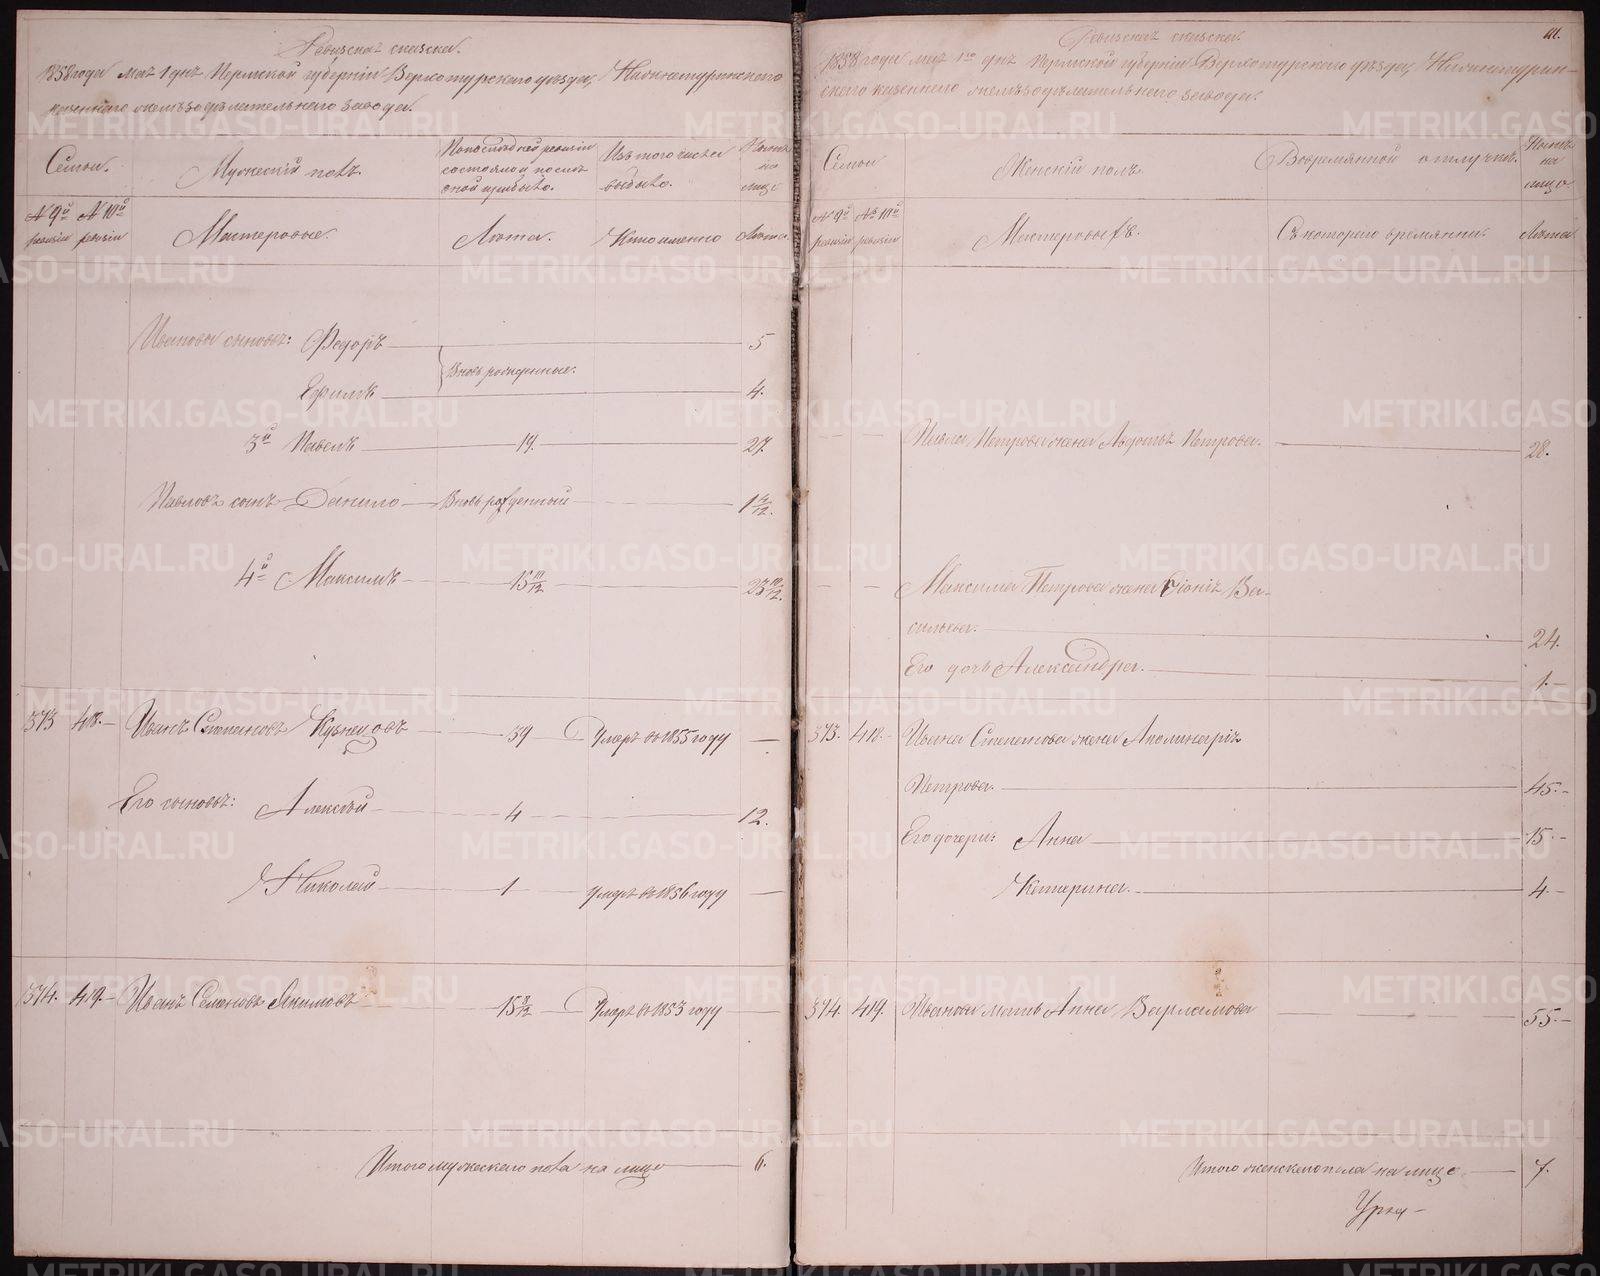 Ревизская сказка.
1858 года мая 1 дня Пермской губернии Верхотурского уѣзда, Нижнетуринского
казеннаго желѣзодѣлательнаго завода.
Семьи.
Мужескій полъ.
По последней ревизіи
состояло и после
оной прибыло.
Изъ того числа
выбыло.
Нынѣ
на
лицо
№ 9й
ревизіи
№ 10й
ревизіи
Мастеровые.
Лѣта.
Кто именно
Лѣта.
Ивановы сыновья: Федоръ 5
Вновь рожденные.
Ефимъ 4.
3й Павелъ 19. 27.
Павловъ сынъ Данило Вновь рожденный 1 4/12.
4й Максимъ 15 10/12 23 10/12.
373 418. Иванъ Степановъ Кузнецовъ 39 Умеръ въ 1855 году —
Его сыновья: Алексѣй 4 12.
Николай 1 Умеръ въ 1856 году —
374. 419. Иванъ Семеновъ Якимовъ 15 8/12 Умеръ въ 1853 году —
Итого мужескаго пола на лицо 6.
Ревизская сказка.
1858 года мая 1го дня Пермской губерніи Верхотурскаго уѣзда, Нижнетурин-
скаго казеннаго желѣзодѣлательнаго завода.
Семьи
Женскій полъ.
Во временной отлучкѣ.
Нынѣ
на
лицо.
№ 9й
ревизіи
№ 10й
ревизіи
Мастеровые.
Съ котораго времяни.
Лѣта
Павла Петрова жена Авдотья Петрова. 28.
Максима Петрова жена Ва-
сильева. 24.
Его дочь Александра. 1.
373. 418. Ивана Степанова жена Аполинарія
Петрова. 45.
Его дочери: Анна 15.
Катерина. 4.
374. 419. Иванова мать Анна Варламова 55.
Итого женскаго пола на лицо 7.
METRIKI.GASO-URAL.RU